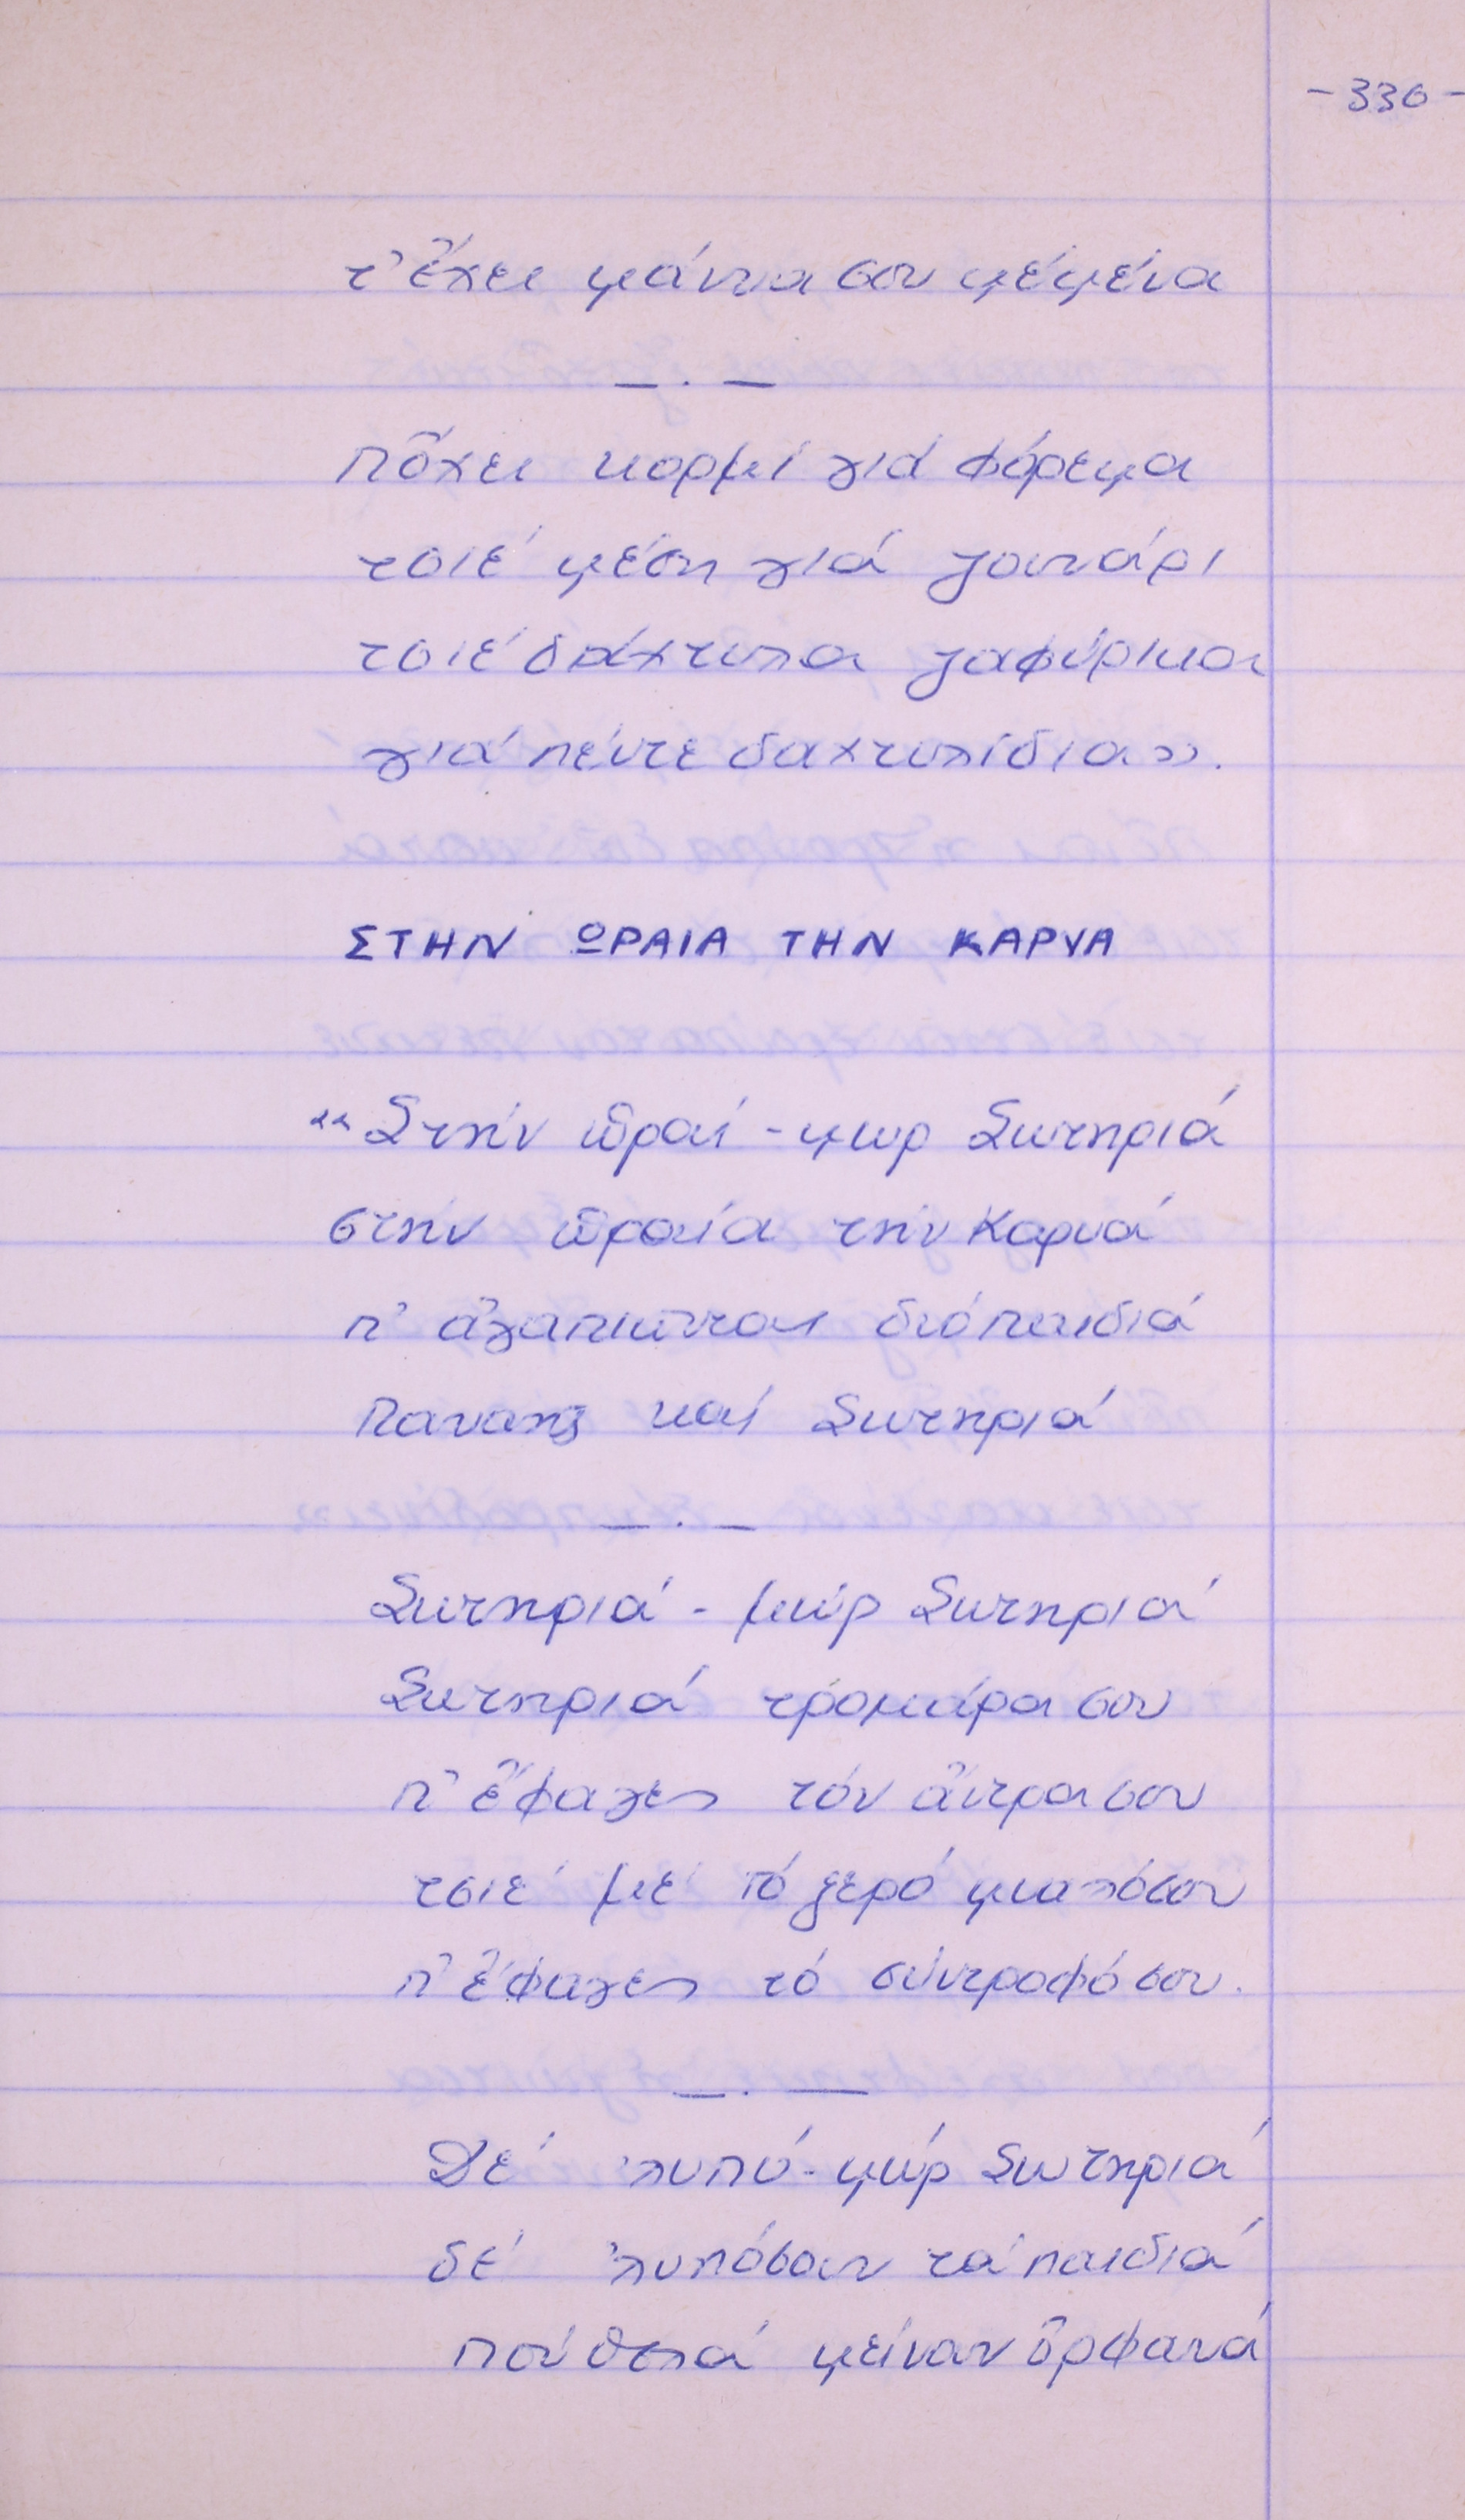 -330-
τ' ἔχει μάννα σου μέ μένα
— . —
πὄχει κορμί γιά φόρεμα
τσιέ μέση γιά ζουνάρι
τσιέ δάχτυλα ζαφύρικα
γιά πέντε δαχτυλίδια».
ΣΤΗΝ ΩΡΑΙΑ ΤΗΝ ΚΑΡΥΑ
«Στήν ὡραί - μωρ Σωτηριά
στήν ὡραία τήν Καρυά
π' ἀγαπιῶνται διό παιδιά
Παναγῆς καί Σωτηριά
— . —
Σωτηριά - μώρ Σωτηριά
Σωτηριά τρομάρα σου
π' ἔφαγες τόν ἄντρα σου
τσιέ μέ τό ξερό μιαλόσου
π' ἔφαγες τό σύντροφό σου.
— . —
Δέ λυπό - μώρ Σωτηριά
δέ λυπόσαν τά παιδιά
πού θελά μείναν ὀρφανά